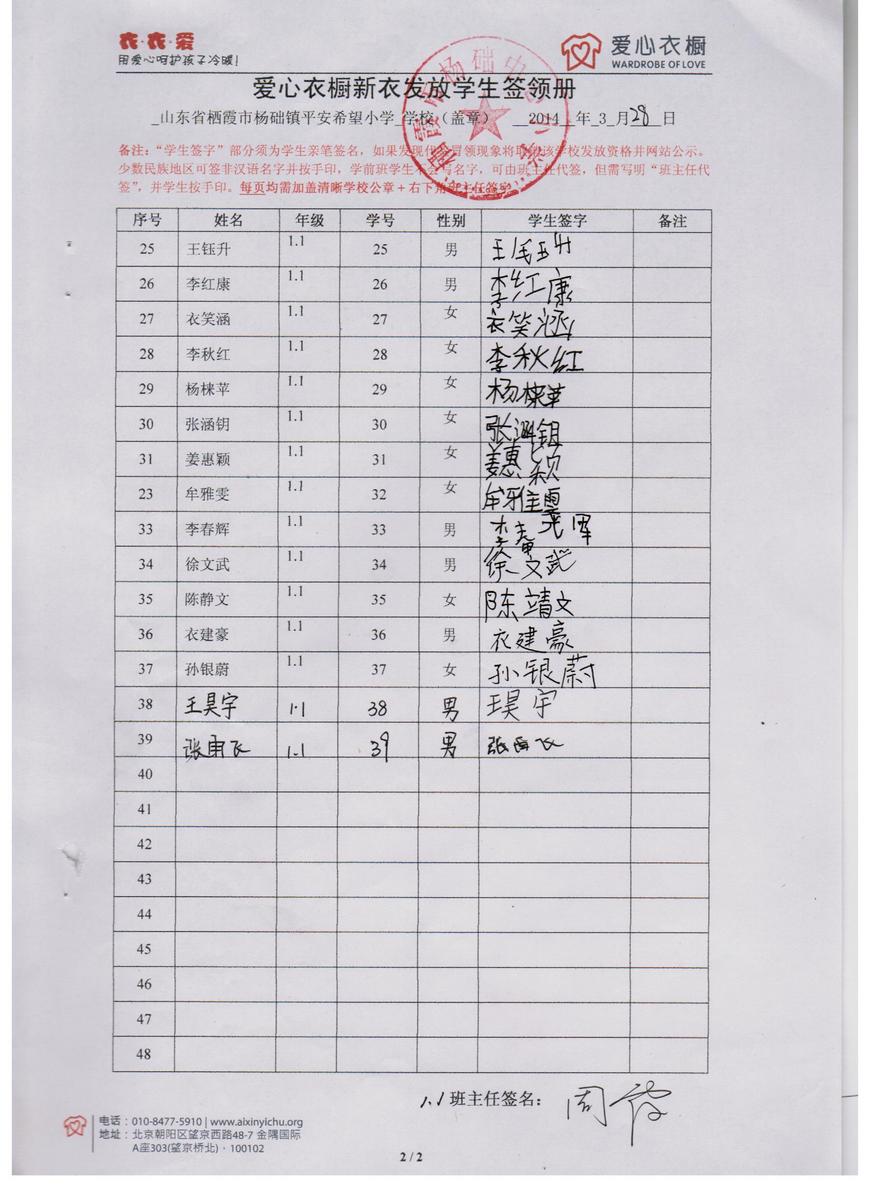 衣·衣·爱
用爱心呵护孩子冷暖！
爱心衣橱
WARDROBE OF LOVE
爱心衣橱新衣发放学生签领册
_山东省栖霞市杨础镇平安希望小学_学校（盖章） __2014__年_3_月28_日
备注："学生签字"部分须为学生亲笔签名，如果发现代签冒领现象将取消该学校发放资格并网站公示。
少数民族地区可签非汉语名字并按手印，学前班学生不会写名字，可由班主任代签，但需写明"班主任代
签"，并学生按手印。每页均需加盖清晰学校公章＋右下角班主任签字
序号 姓名 年级 学号 性别 学生签字 备注
25 王钰升 1.1 25 男 王钰升
26 李红康 1.1 26 男 李红康
27 衣笑涵 1.1 27 女 衣笑涵
28 李秋红 1.1 28 女 李秋红
29 杨棶苹 1.1 29 女 杨棶苹
30 张涵钥 1.1 30 女 张涵钥
31 姜惠颖 1.1 31 女 姜惠颖
23 牟雅雯 1.1 32 女 牟雅雯
33 李春辉 1.1 33 男 李春辉
34 徐文武 1.1 34 男 徐文武
35 陈静文 1.1 35 女 陈靖文
36 衣建豪 1.1 36 男 衣建豪
37 孙银蔚 1.1 37 女 孙银蔚
38 王昊宇 1.1 38 男 王昊宇
39 张雨飞 1.1 39 男 张雨飞
40
41
42
43
44
45
46
47
48
1.1 班主任签名： 周霞
电话：010-8477-5910 | www.aixinyichu.org
地址：北京朝阳区望京西路48-7 金隅国际
A座303(望京桥北)·100102
2 / 2